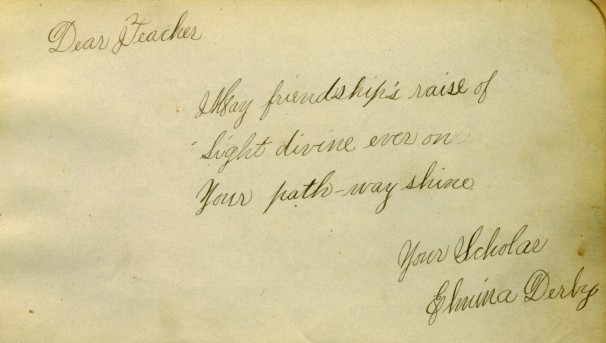 Dear Teacher
May friendship's raise of
Light divine ever on
Your path-way shine
Your Scholar
Elmina Derby